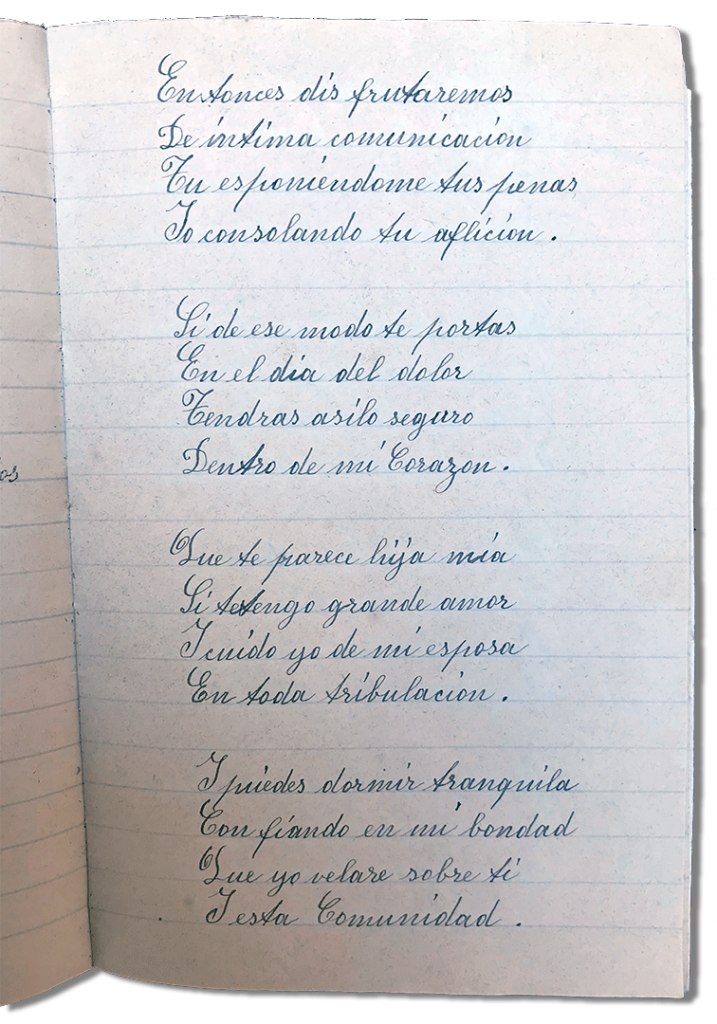 Entonces dis frutaremos
De íntima comunicación
Tu esponiéndome tus penas
Io consolando tu aflición.
Si de ese modo te portas
En el día del dolor
Tendras asilo seguro
Dentro de mi Corazon.
Que te parece hija mía
Si te tengo grande amor
I cuido yo de mi esposa
En toda tribulación.
I puedes dormir tranquila
Con fiando en mi bondad
Que yo velare sobre ti
I esta Comunidad.
os